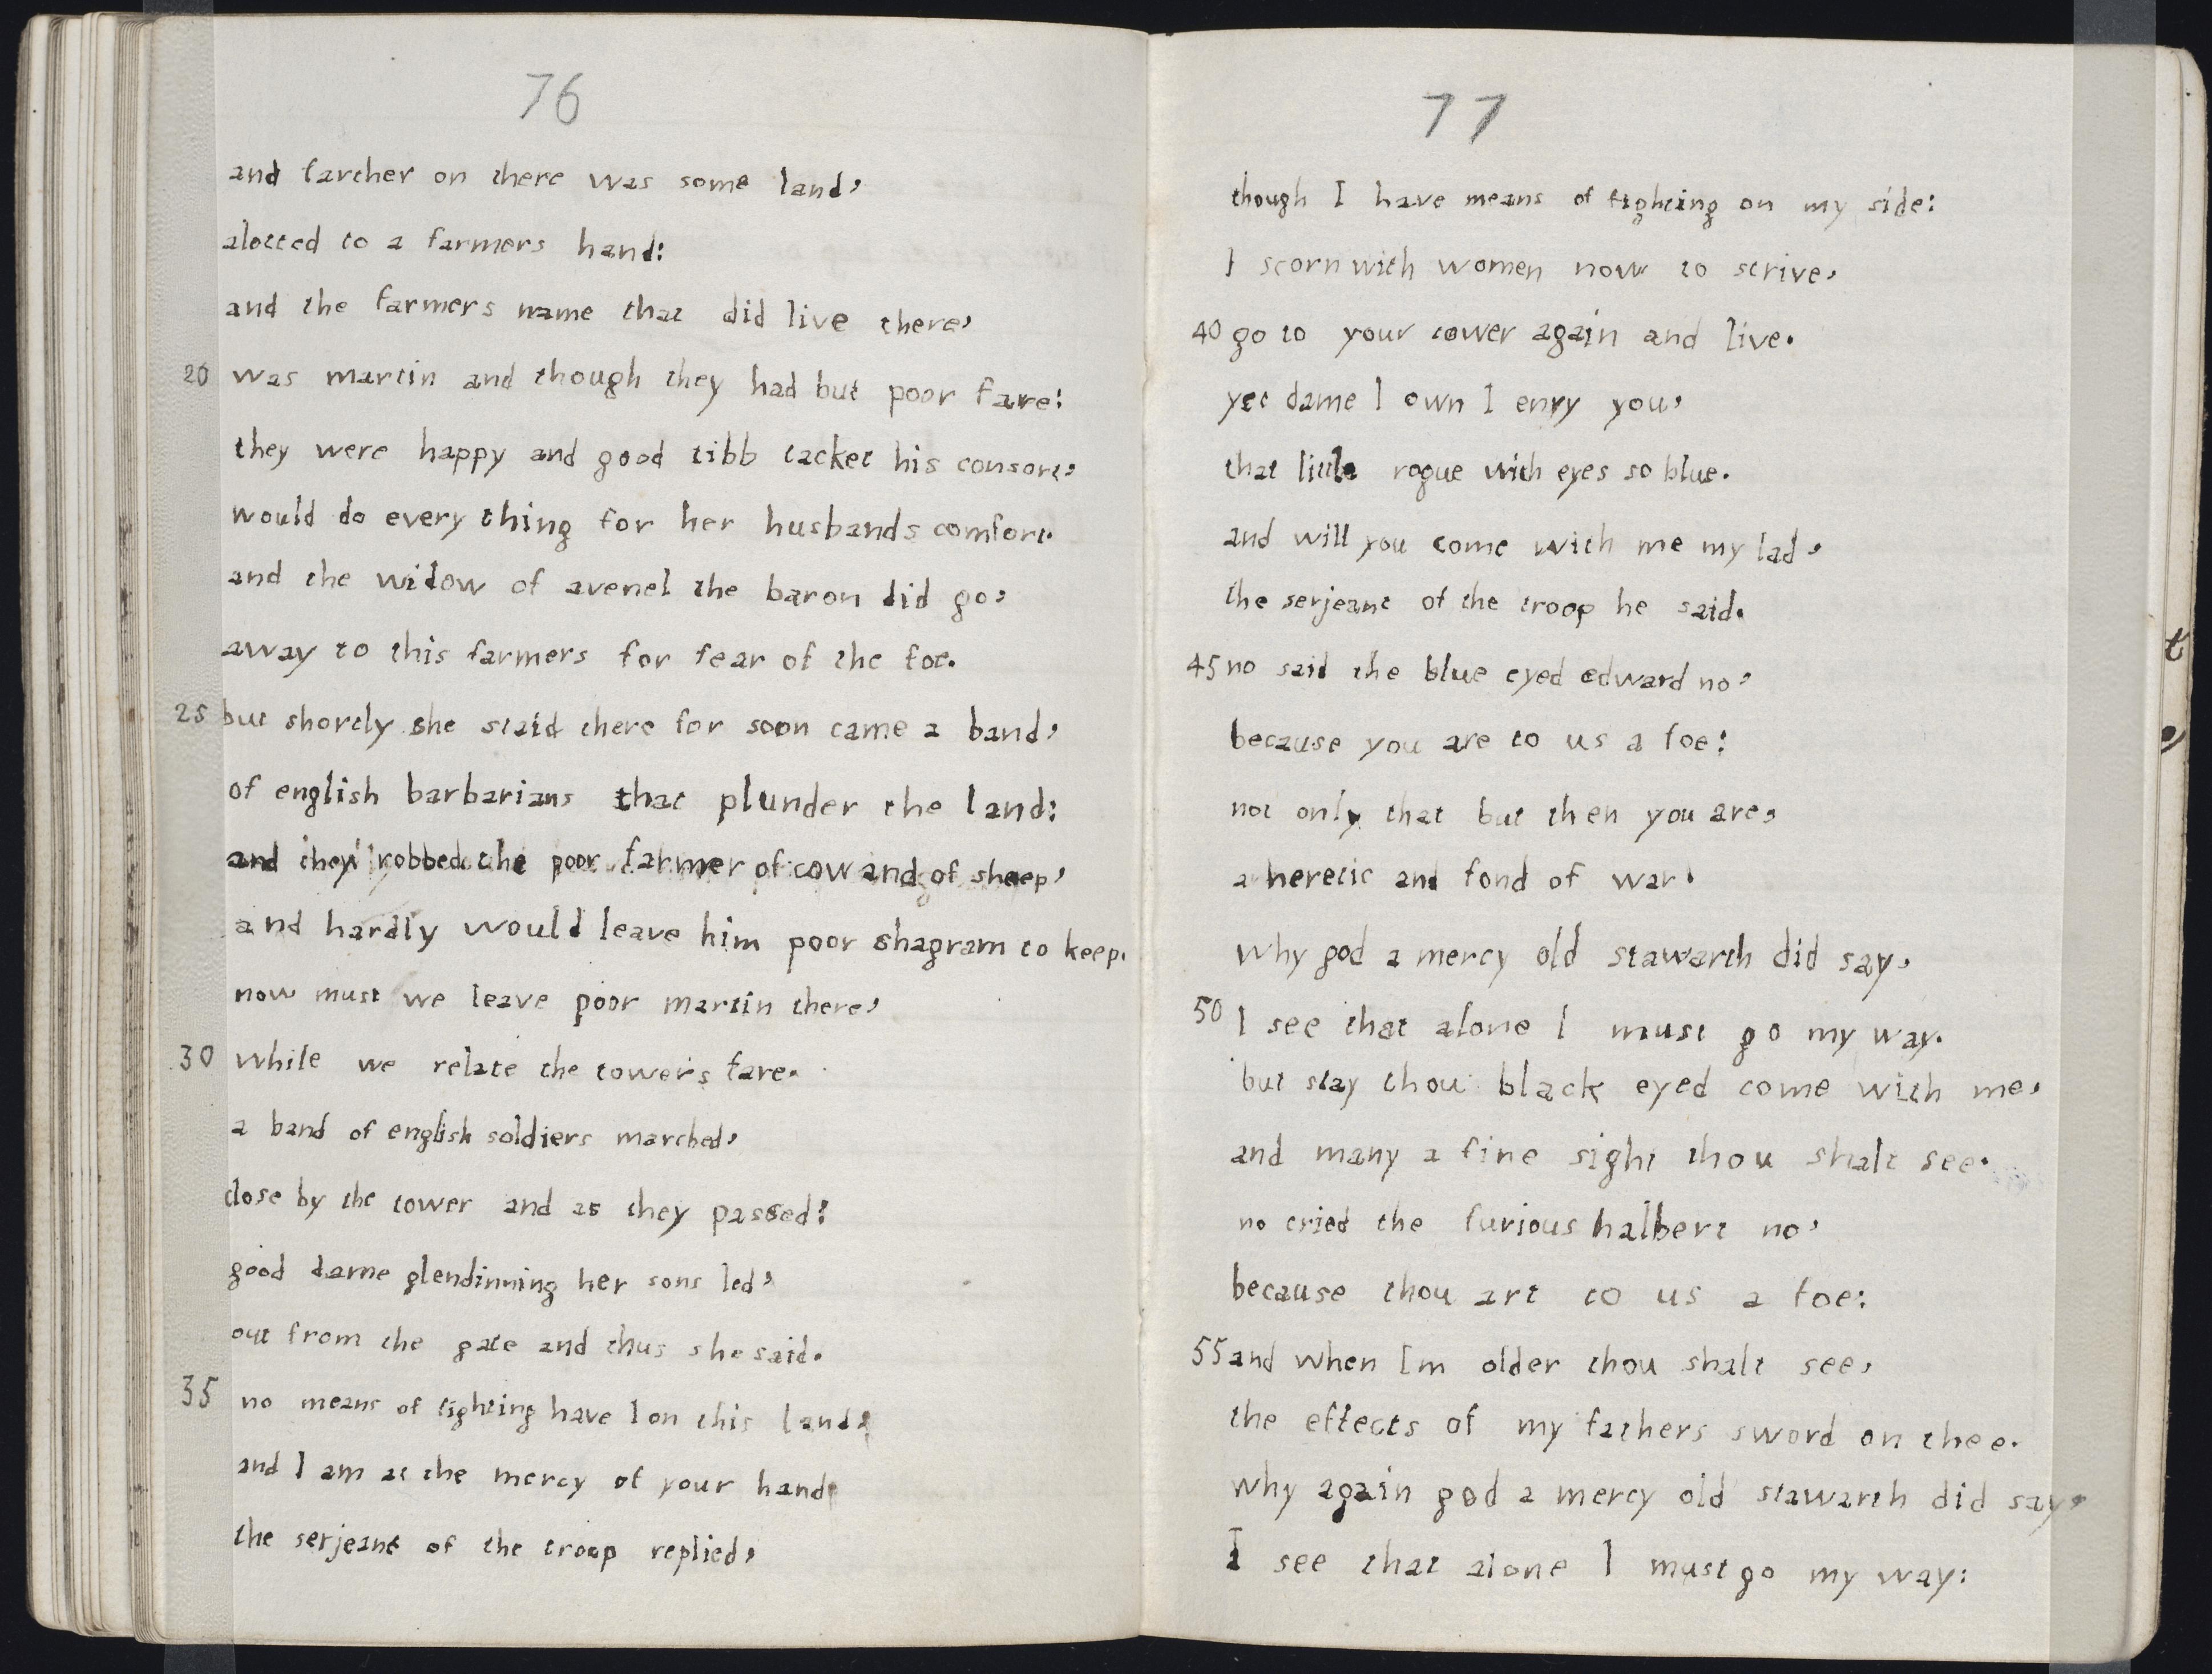 76
and farther on there was some land,
alotted to a farmers hand:
and the farmers name that did live there,
20 was martin and though they had but poor fare:
they were happy and good tibb tacket his consort,
would do every thing for her husbands comfort.
and the widow of avenel the baron did go,
away to this farmers for fear of the foe.
25 but shortly she staid there for soon came a band,
of english barbarians that plunder the land:
and they robbed the poor farmer of cow and of sheep,
and hardly would leave him poor shagram to keep.
now must we leave poor martin there,
30 while we relate the towers fare.
a band of english soldiers marched,
close by the tower and as they passed:
good dame glendinning her sons led,
out from the gate and thus she said.
35 no means of fighting have I on this land,
and I am at the mercy of your hand
the serjeant of the troop replied,
77
though I have means of fighting on my side:
I scorn with women now to strive,
40 go to your tower again and live.
yet dame I own I envy you,
that little rogue with eyes so blue.
and will you come with me my lad,
the serjeant of the troop he said.
45 no said the blue eyed edward no,
because you are to us a foe:
not only that but then you are,
a heretic and fond of war.
why god a mercy old stawarth did say,
50 I see that alone I must go my way.
but stay thou black eyed come with me,
and many a fine sight thou shalt see.
no cried the furious halbert no,
because thou art to us a foe:
55 and when Im older thou shalt see,
the effects of my fathers sword on thee.
why again god a mercy old stawarth did say,
I see that alone I must go my way:
t